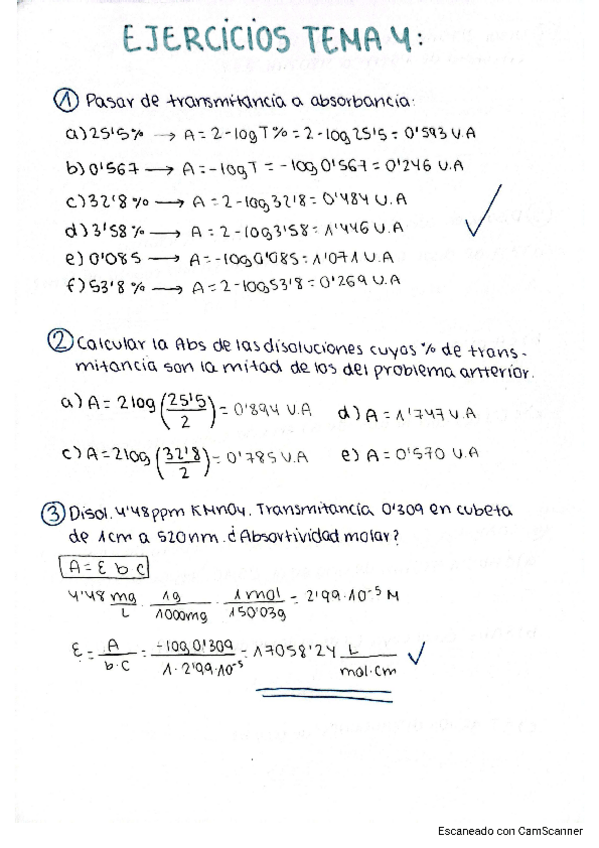 EJERCICIOS TEMA 4:
① Pasar de transmitancia a absorbancia:
a) 25'5% → A = 2 - log T% = 2 - log 25'5 = 0'593 U.A
b) 0'567 → A = -log T = -log 0'567 = 0'246 U.A
c) 32'8 % → A = 2 - log 32'8 = 0'484 U.A
d) 3'58 % → A = 2 - log 3'58 = 1'446 U.A
e) 0'085 → A = -log 0'085 = 1'071 U.A
f) 53'8 % → A = 2 - log 53'8 = 0'269 U.A
② Calcular la Abs de las disoluciones cuyos % de trans-
mitancia son la mitad de los del problema anterior.
a) A = 2 log (25'5/2) = 0'894 U.A d) A = 1'747 U.A
c) A = 2 log (32'8/2) = 0'785 U.A e) A = 0'570 U.A
③ Disol. 4'48 ppm KMnO4. Transmitancia 0'309 en cubeta
de 1cm a 520nm. ¿Absortividad molar?
A = ε b c
4'48 mg/L · 1g/1000mg · 1 mol/150'03g = 2'99·10⁻⁵ M
ε = A/b·c = -log 0'309/1·2'99·10⁻⁵ = 17058'24 L/mol·cm
Escaneado con CamScanner